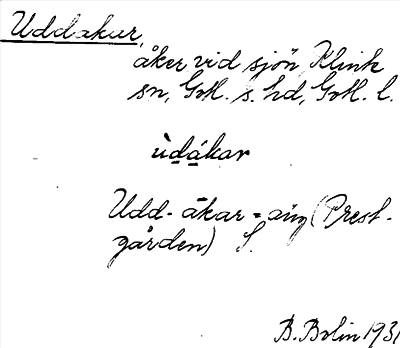 Uddakur,
åker vid sjön, Klinte
sn, Gotl. s. hd, Gotl. l.
ùdákar
Udd-åkar-äng (Prest-
gården) S.
B. Bolin 1931